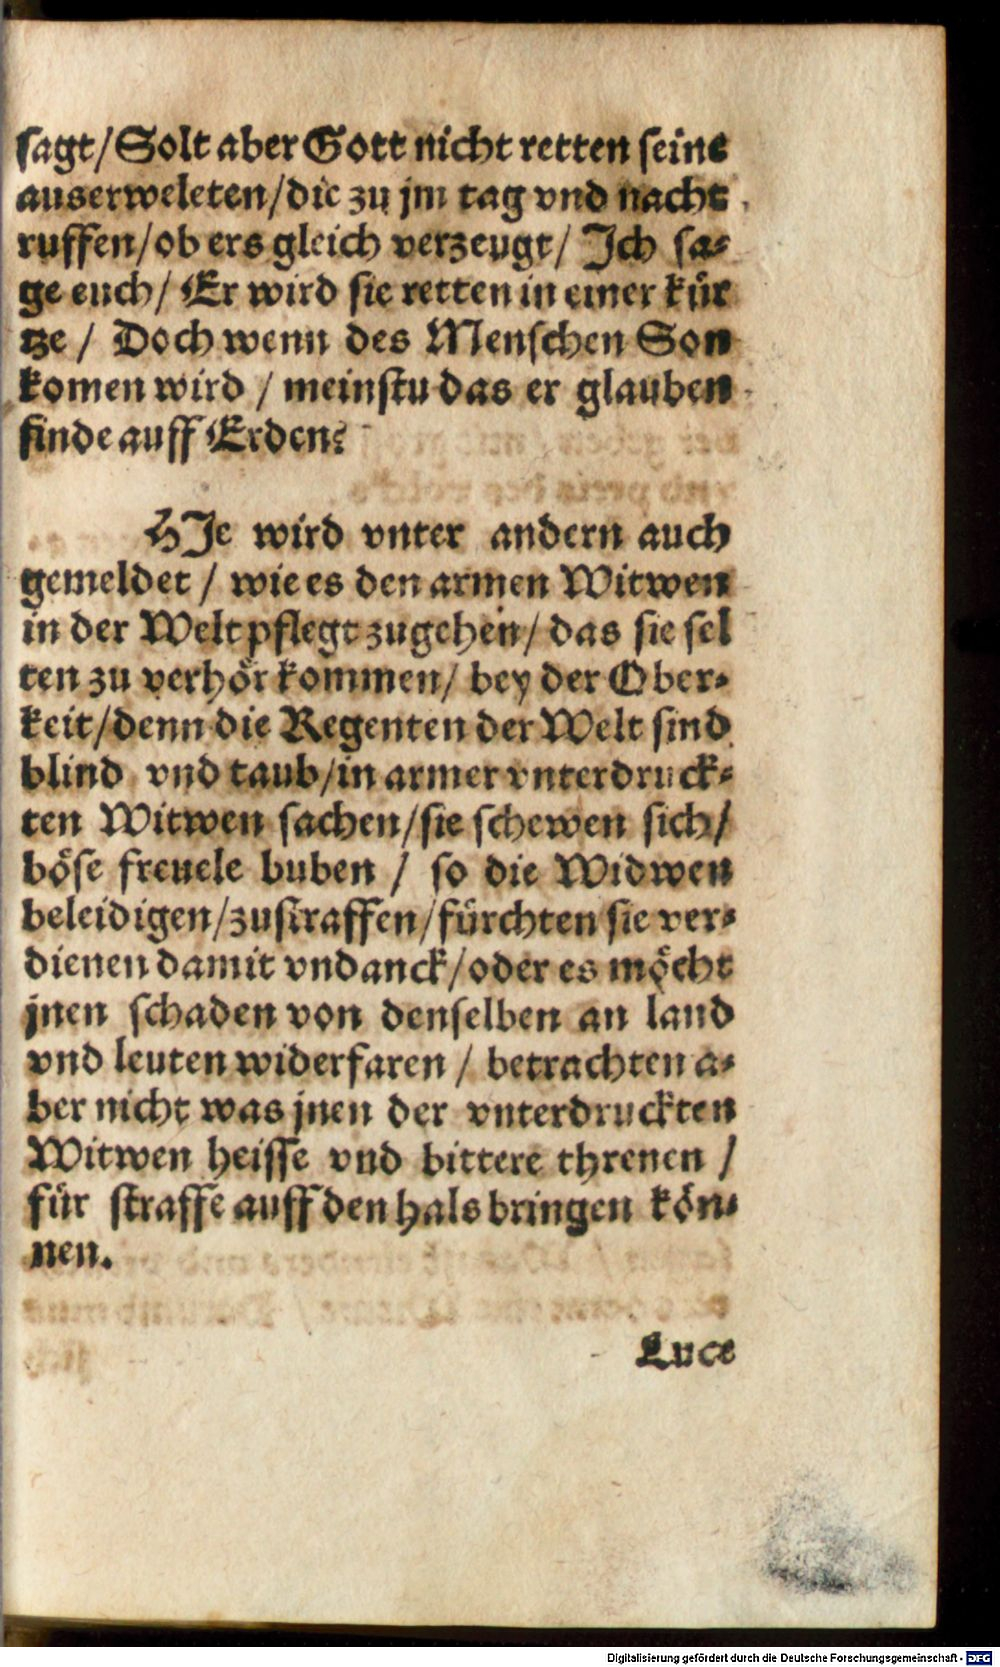 sagt/ Solt aber Gott nicht retten seine
auserweleten/ die zu jm tag vnd nacht
ruffen/ ob ers gleich verzeugt/ Ich sa⸗
ge euch/ Er wird sie retten in einer kür
tze/ Doch wenn des Menschen Son
komen wird/ meinstu das er glauben
finde auff Erden?
HIe wird vnter andern auch
gemeldet/ wie es den armen Witwen
in der Welt pflegt zugehen/ das sie sel
ten zu verhör kommen/ bey der Ober⸗
keit/ denn die Regenten der Welt sind
blind vnd taub/ in armer vnterdruck⸗
ten Witwen sachen/ sie schewen sich/
böse freuele buben/ so die Widwen
beleidigen/ zustraffen/ fürchten sie ver⸗
dienen damit vndanck/ oder es möcht
jnen schaden von denselben an land
vnd leuten widerfaren/ betrachten a⸗
ber nicht was jnen der vnterdruckten
Witwen heisse vnd bittere threnen/
für straffe auff den hals bringen kön⸗
nen.
Luce
Digitalisierung gefördert durch die Deutsche Forschungsgemeinschaft - DFG